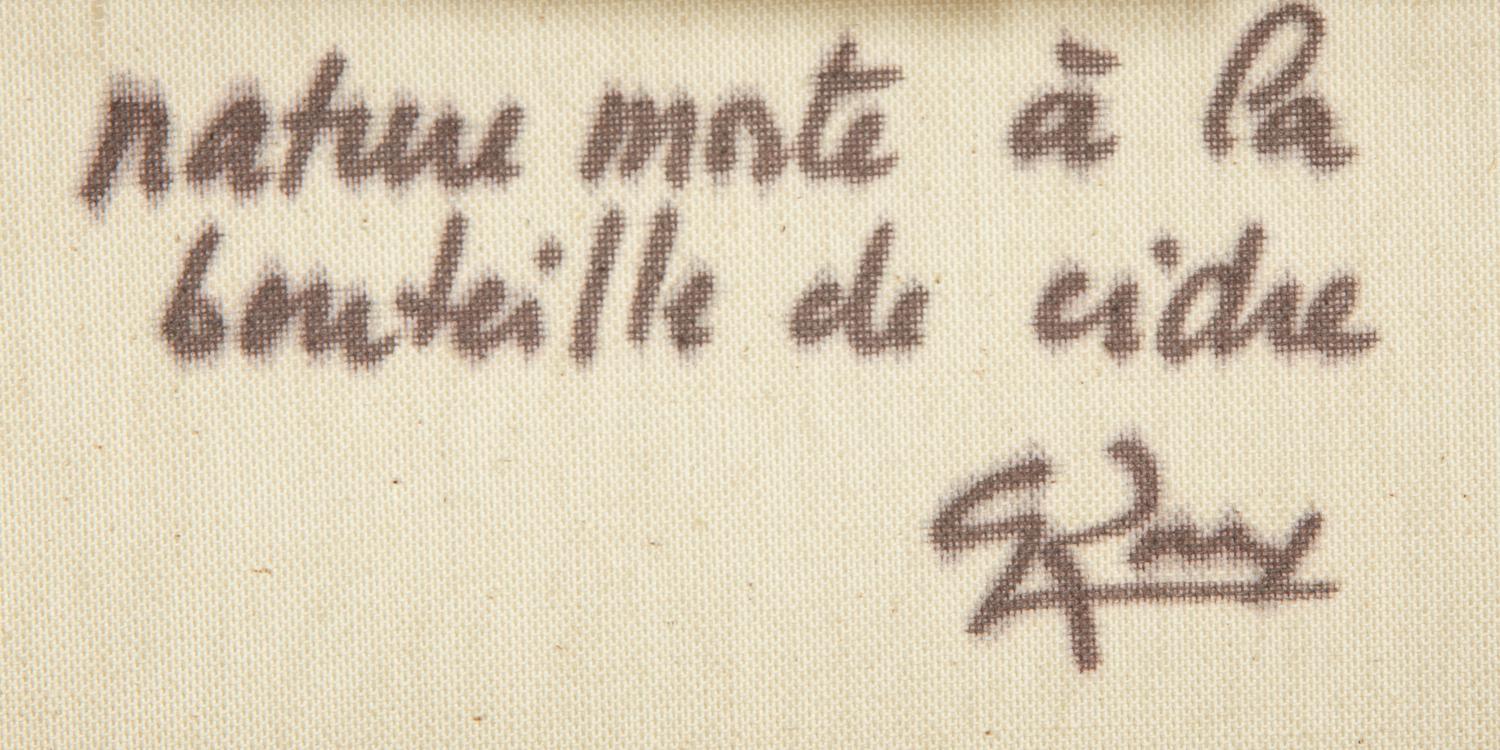 nature morte à la
bouteille de cidre